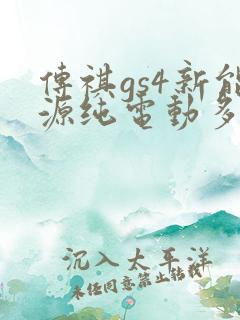 傳祺gs4新能
源纯電動多
沉入太平洋
未经同意禁止转载